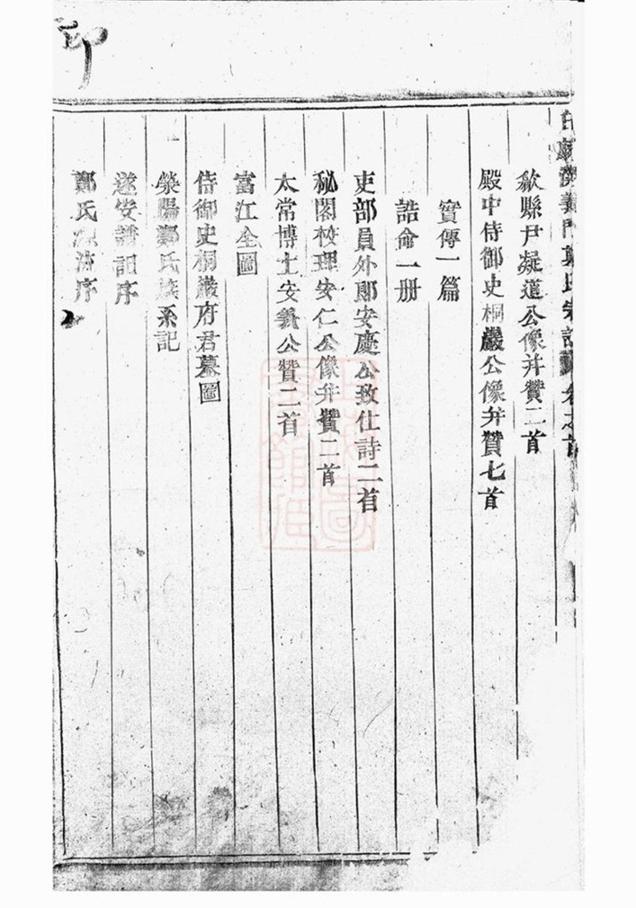 歙縣尹凝道公像并贊二首
殿中侍御史桐巖公像并贊七首
實傳一篇
誥命一册
吏部員外郎安慶公致仕詩二首
秘閣校理安仁公像并贊二首
太常博士安義公贊二首
富江全圖
侍御史桐巖府君墓圖
滎陽鄭氏族系記
遂安譜記序
鄭氏源流序
印